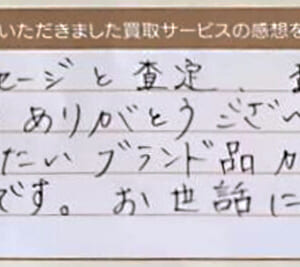 いただきました買取サービスの感想を
セージと査定、
ありがとうござい
たい ブランド品が
です。お世話に